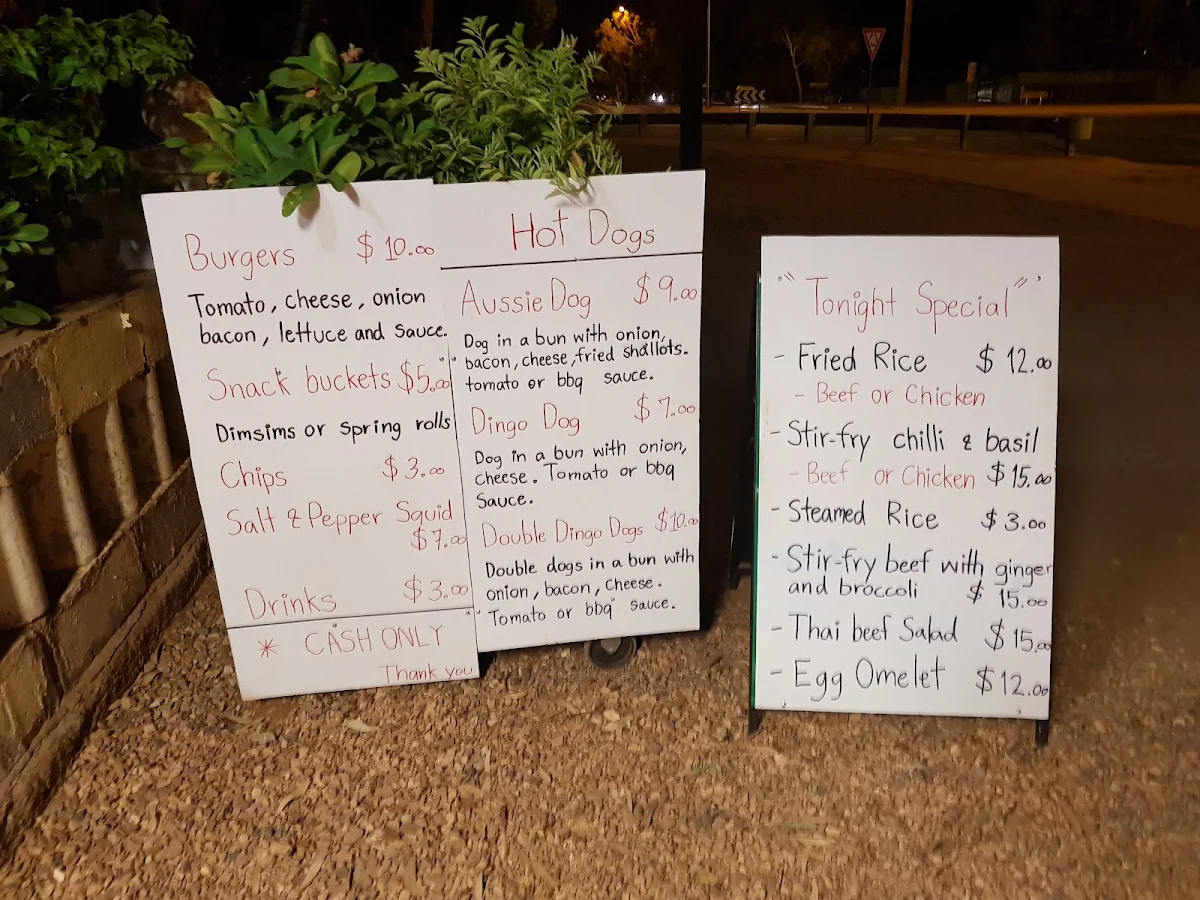 Burgers $10.00
Tomato, cheese, onion
bacon, lettuce and sauce.
Snack buckets $5.00
Dimsims or spring rolls
Chips $3.00
Salt & Pepper Squid
$7.00
Drinks $3.00
* CASH ONLY
Thank you
Hot Dogs
Aussie Dog $9.00
Dog in a bun with onion,
bacon, cheese, fried shallots.
tomato or bbq sauce.
Dingo Dog $7.00
Dog in a bun with onion,
cheese. Tomato or bbq
Sauce.
Double Dingo Dogs $10.00
Double dogs in a bun with
onion, bacon, cheese.
Tomato or bbq sauce.
"Tonight Special"
- Fried Rice $12.00
- Beef or Chicken
- Stir-fry chilli & basil
- Beef or Chicken $15.00
- Steamed Rice $3.00
- Stir-fry beef with ginger
and broccoli $15.00
- Thai beef Salad $15.00
- Egg Omelet $12.00